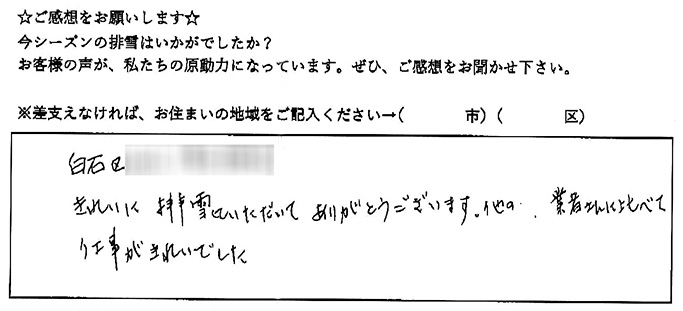 ☆ご感想をお願いします☆
今シーズンの排雪はいかがでしたか？
お客様の声が、私たちの原動力になっています。ぜひ、ご感想をお聞かせ下さい。
※差支えなければ、お住まいの地域をご記入ください→( 市) ( 区)
白石区
きれいに排雪していただいてありがとうございます。他の業者さんにくらべて
仕事がきれいでした